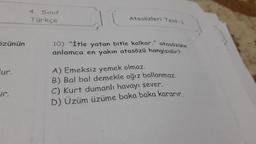 4. Sınıf
Türkçe
Atasözleri Test-1
özünün
10) "İtle yatan bitle kalkar." atasözüne
anlamca en yakın atasözü hangisidir?
A) Emeksiz yemek olmaz.
B) Bal bal demekle ağız ballanmaz.
C) Kurt dumanlı havayı sever.
D) Üzüm üzüme baka baka kararır.